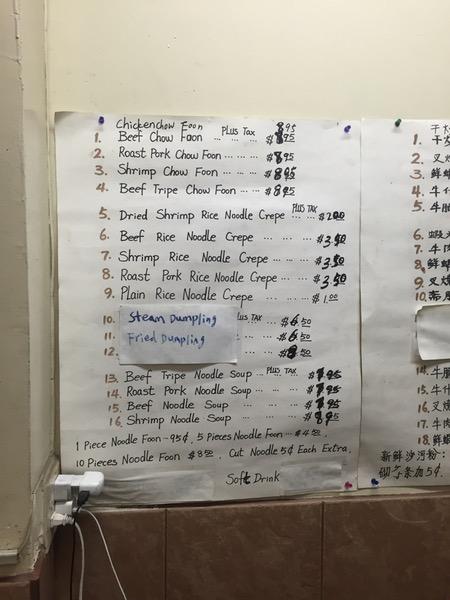 Chickenchow Foon 8.95
1. Beef Chow Foon PLUS TAX $8.95
2. Roast Pork Chow Foon ... ... $8.95
3. Shrimp Chow Foon ... ... $8.95
4. Beef Tripe Chow Foon ... ... $8.95
5. Dried Shrimp Rice Noodle Crepe PLUS TAX ... ... $2.00
6. Beef Rice Noodle Crepe ... ... ... $3.50
7. Shrimp Rice Noodle Crepe ... ... $3.50
8. Roast Pork Rice Noodle Crepe ... ... $3.50
9. Plain Rice Noodle Crepe ... ... $1.00
10. Steam Dumpling TAX $6.50
11. Fried Dumpling ... $6.50
12. ... $8.50
13. Beef Tripe Noodle Soup ... PLUS TAX ... $7.95
14. Roast Pork Noodle Soup ... ... $7.95
15. Beef Noodle Soup ... ... ... $7.95
16. Shrimp Noodle Soup ... ... ...
1 Piece Noodle Foon - 95¢, 5 Pieces Noodle Foon ... $4.50,
10 Pieces Noodle Foon $8.50, Cut Noodle 5¢ Each Extra.
Soft Drink
干炒
1. 干炒
2. 叉
3. 鲜
4. 牛
5. 牛
6. 蝦
7. 牛肉
8. 鲜
9. 叉
10.
14. 牛
15. 牛
16. 叉
17. 牛肉
18. 鲜
新鲜沙河粉:
加5¢.